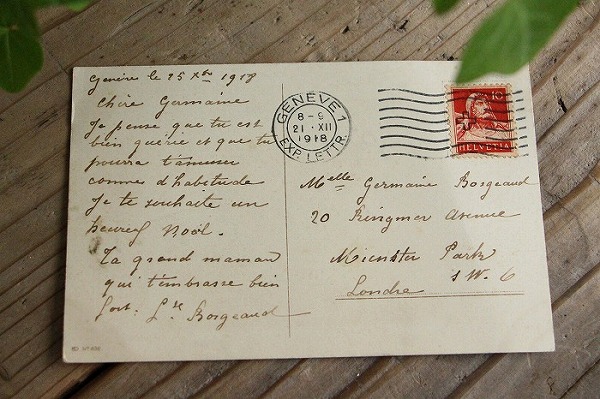 Genève le 25 Xbre 1918
Chère Germaine
Je pense que tu est
bien guérie et que tu
pourra t'amuser
comme d'habitude
Je te souhaite un
heureux Noël.
Ta grand maman
qui t'embrasse bien
fort. Lse Borgeaud
GENÈVE 1
8-9
21·XII
1918
EXP. LETTR.
10
HELVETIA
Melle Germaine Borgeaud
20 Ringmer Avenue
Munster Park
SW. 6
Londre